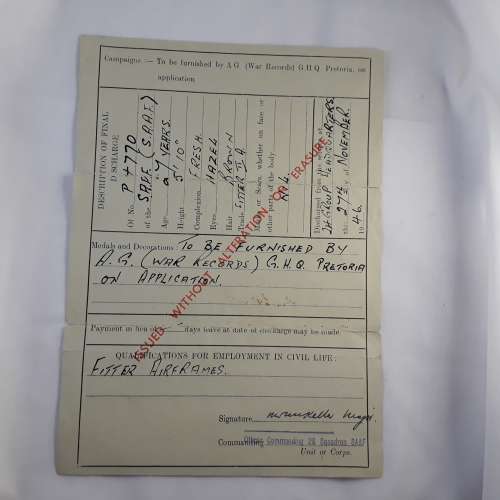 Campaigns :— To be furnished by A.G. (War Records) G.H.Q. Pretoria, on
application
DESCRIPTION OF FINAL
DISCHARGE
Of No. P 4770
of the SADF (S.A.A.F.)
Age 24 YEARS.
Height 5' 10"
Complexion FRESH.
Eyes HAZEL
Hair BROWN
Trade FITTER II A.
Marks or Scars, whether on face or
other parts of the body
NIL.
Discharged from the service at
24 GROUP HEADQUARTERS
this 27TH of NOVEMBER.
19 46.
Medals and Decorations: TO BE FURNISHED BY
A.G. (WAR RECORDS) G.H.Q. PRETORIA
ON APPLICATION.
Payment in lieu of days leave at date of discharge may be made.
QUALIFICATIONS FOR EMPLOYMENT IN CIVIL LIFE:
FITTER AIRFRAMES.
Signature
Commanding Officer Commanding 26 Squadron SAAF
Unit or Corps.
ISSUED WITHOUT ALTERATION OR ERASURE